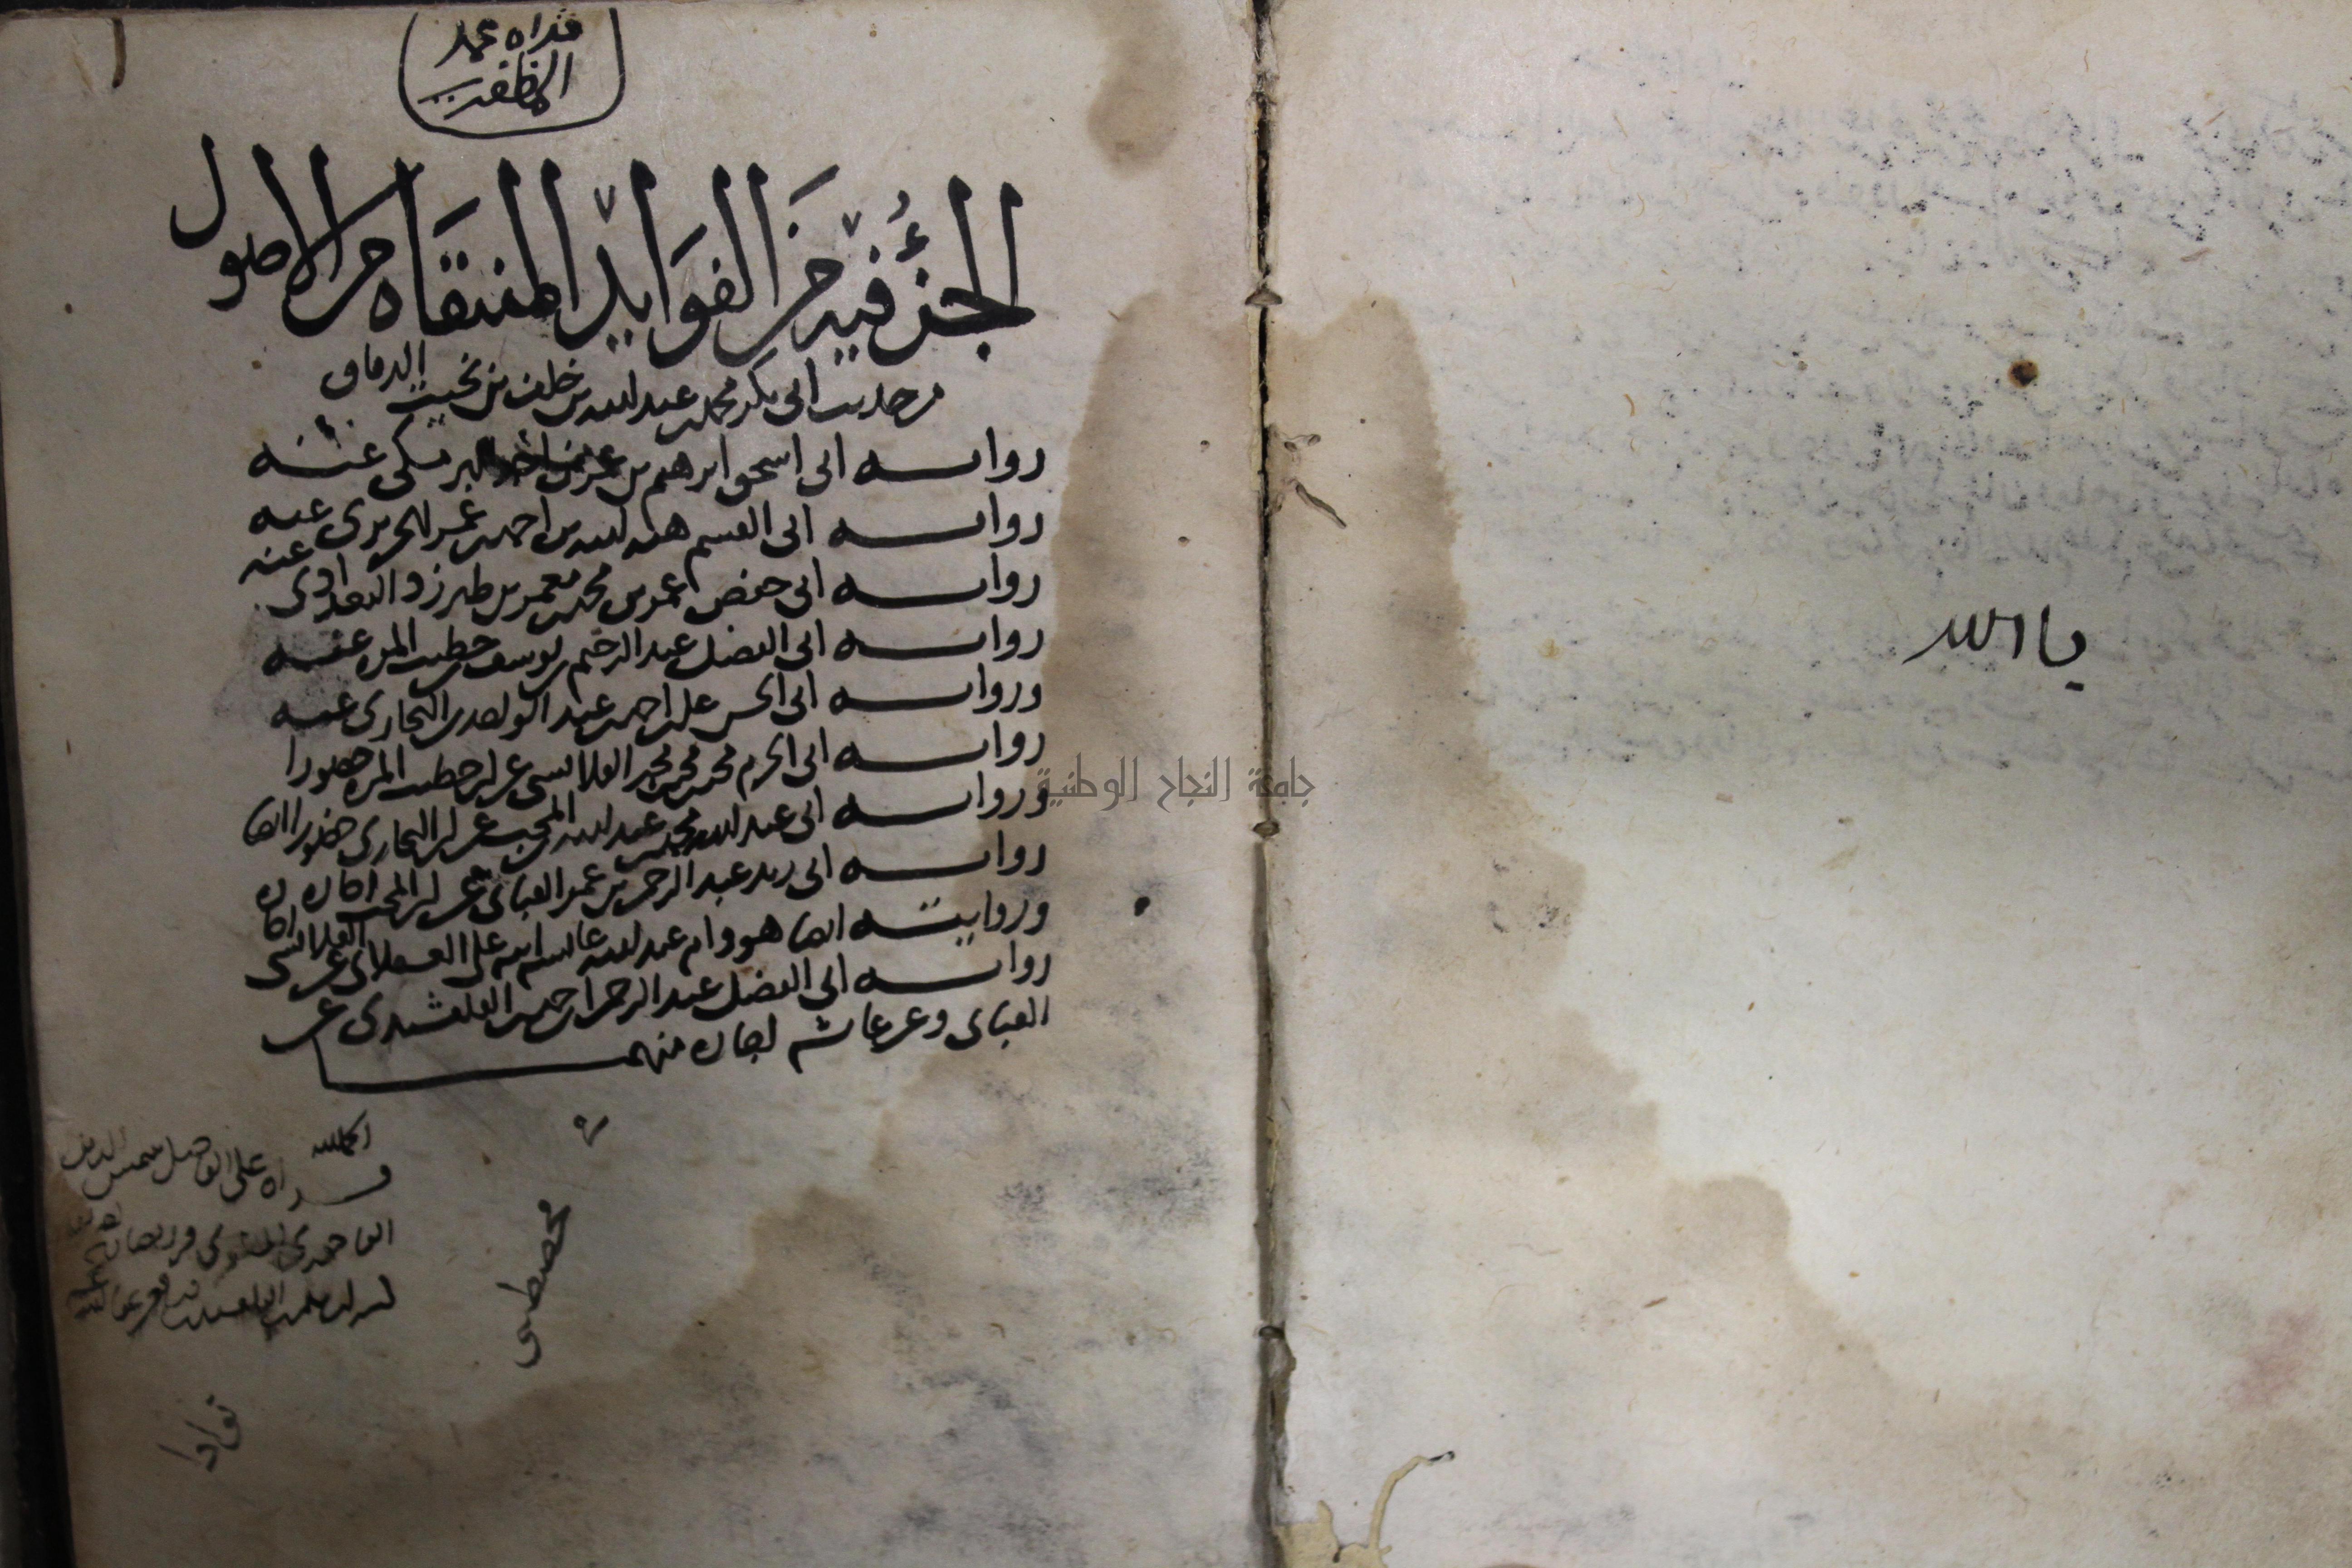 يا الله
قراه محمد
المظفري
الجزء فيه من الفوايد المنتقاه من الاصول
من حديث ابي بكر محمد بن عبد الله بن خلف بن بخيت الدقاق
رواية ابي اسحق ابرهيم بن عمر بن احمد البرمكي عنه
رواية ابي القسم هبة الله بن احمد بن عمر الحريري عنه
رواية ابي حفص عمر بن محمد بن معمر بن طبرزد البغدادي عنه
رواية ابي الفضل عبد الرحيم بن يوسف خطيب المزه عنه
ورواية ابي الحسن علي بن احمد بن عبد الواحد بن البخاري عنه
رواية ابي الحرم محمد بن محمد بن محمد القلانسي عن ابن خطيب المزه حضورا
ورواية ابي عبد الله محمد بن عبد الله بن المحب عن ابن البخاري حضورا ايضا
رواية ابي زيد عبد الرحمن بن عمر القبابي عن ابن المحب اجازه
وروايته ايضا هو وام عبد الله عايشه ابنة علي العسقلاني عن القلانسي
رواية ابي الفضل عبد الرحمن بن احمد القلقشندي عن
القبابي وعن عايشه اجازه منهما
الحمد لله
قراه على الفاضل شمس الدين
مصطفى
جامعة النجاح الوطنية